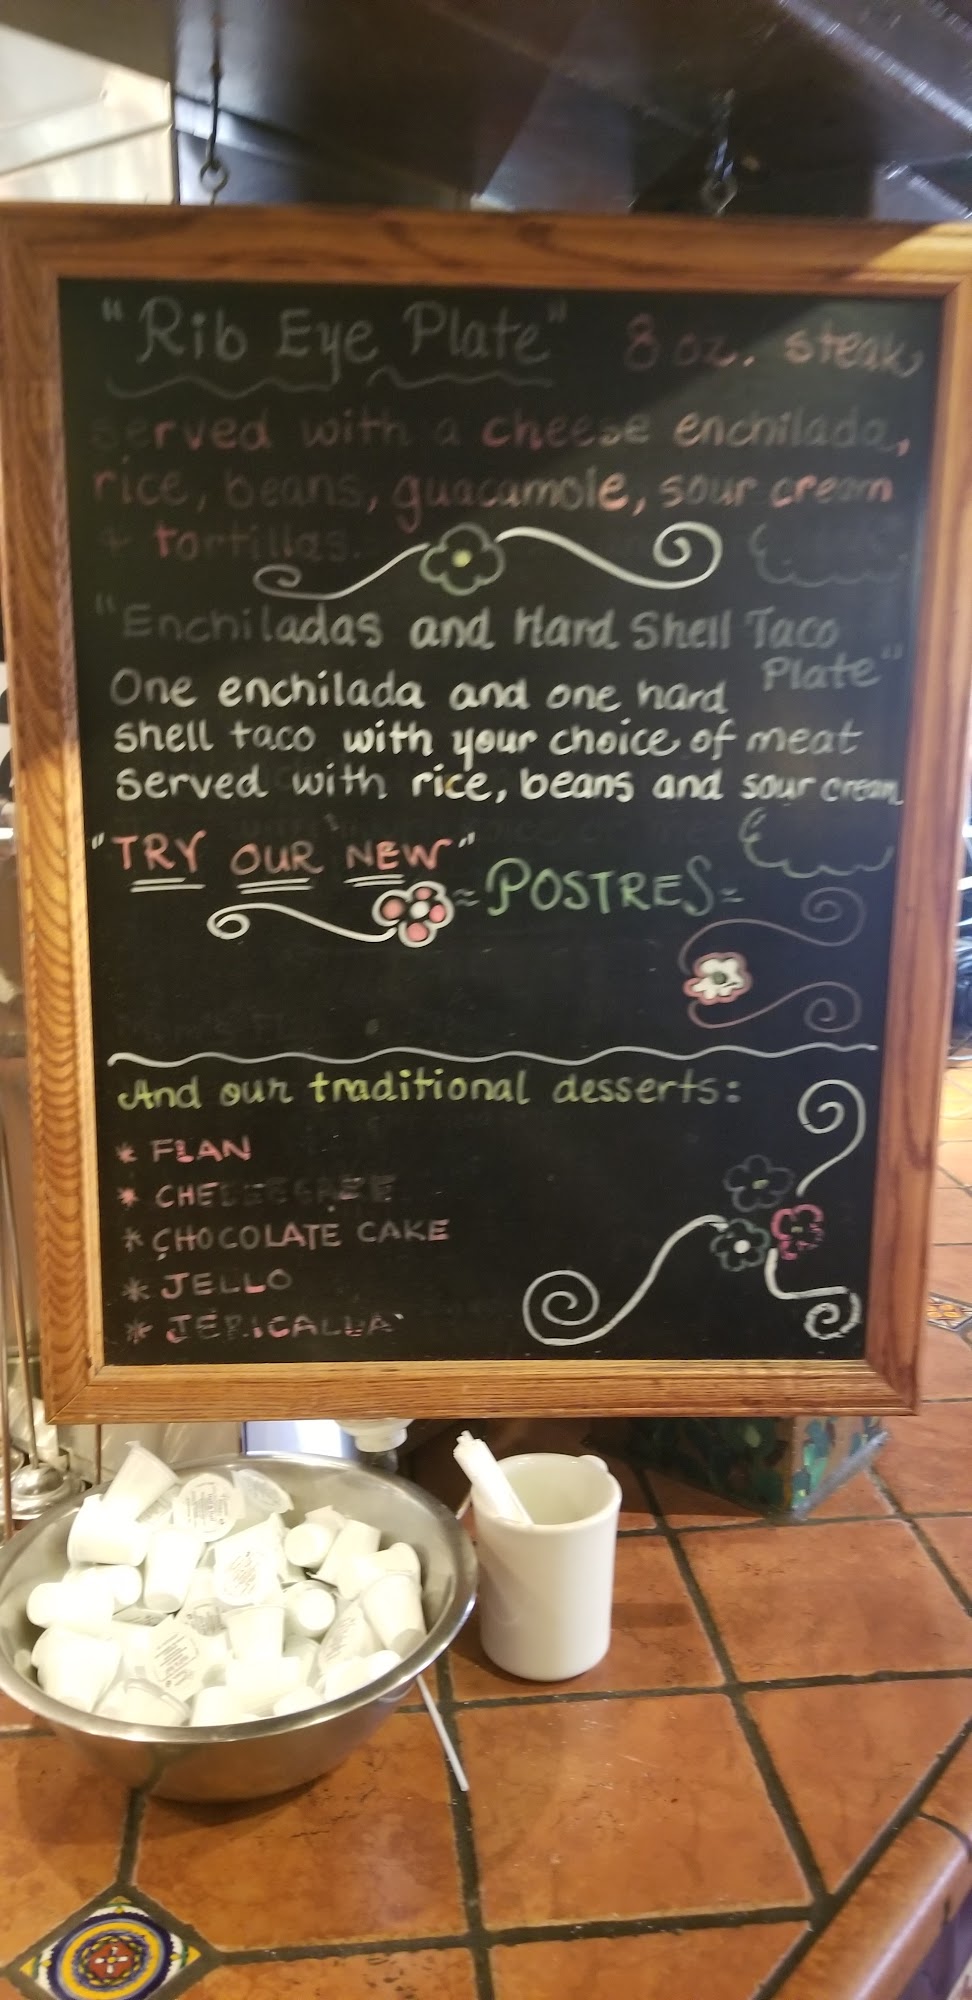 "Rib Eye Plate" 8 oz. steak
served with a cheese enchilada,
rice, beans, guacamole, sour cream
+ tortillas.
"Enchiladas and Hard Shell Taco
Plate"
One enchilada and one hard
shell taco with your choice of meat
served with rice, beans and sour cream
"TRY OUR NEW"
≈ POSTRES ≈
And our traditional desserts:
* FLAN
* CHEESECAKE
* CHOCOLATE CAKE
* JELLO
* JERICALLA